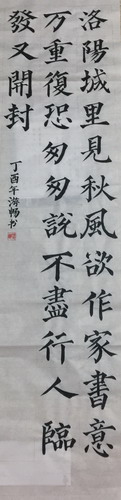 洛陽城里見秋風欲作家書意
万重復恐匆匆說不盡行人臨
發又開封
丁酉年游畅书